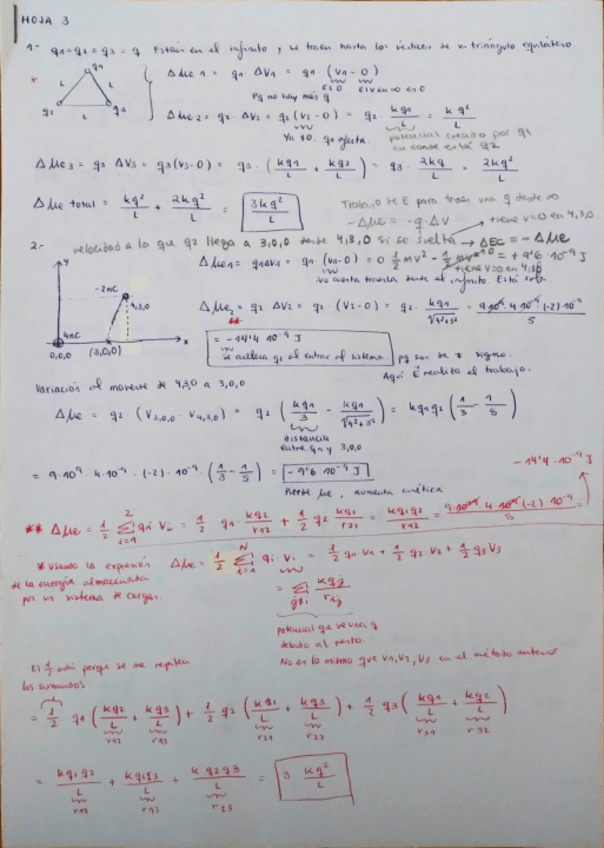 HOJA 3
1.- q1=q2=q3=q. Están en el infinito y se traen hasta los vértices de un triángulo equilátero
* q1 L L q2 L q3
ΔUe1 = q1 · ΔV1 = q1 · (V1 - 0)
es 0 el V en ∞ es 0
Pq no hay más q
ΔUe2 = q2 · ΔV2 = q2 (V2 - 0) = q2 · kq1/L = kq²/L
Ya ≠0. q1 afecta. potencial creado por q1 en donde está q2
ΔUe3 = q3 ΔV3 = q3 (V3-0) = q3 · (kq1/L + kq2/L) = q3 · 2kq/L = 2kq²/L
ΔUe total = kq²/L + 2kq²/L = 3kq²/L
Trabajo de E para traer una q desde ∞
-ΔUe = -q·ΔV
tiene v=0 en 4,3,0.
2.- velocidad a la que q2 llega a 3,0,0 desde 4,3,0 si se suelta → ΔEC = -ΔUe
ΔUe1 = q1ΔV1 = q1 (V1-0) = 0
½mv² - ½mv² = +9'6·10⁻⁹ J
tiene v=0 en 4,3,0
no cuesta traerla desde el infinito. Está sola.
y
-2nC
4,3,0
4nC
0,0,0 (3,0,0) x
ΔUe2 = q2 ΔV2 = q2 · (V2-0) = q2 · kq1/√4²+3² = 9·10⁹·4·10⁻⁹·(-2)·10⁻⁹/5
**
= -14'4·10⁻⁹ J
Se acelera q2 al entrar al sistema
pq son de ≠ signo.
Aquí E realiza el trabajo.
Variación al moverse de 4,3,0 a 3,0,0
ΔUe = q2 · (V3,0,0 - V4,3,0) = q2 (kq1/3 - kq1/√4²+3²) = kq1q2 (1/3 - 1/5)
distancia entre q1 y 3,0,0
= 9·10⁹ · 4·10⁻⁹ · (-2)·10⁻⁹ · (1/3 - 1/5) = -9'6·10⁻⁹ J
Pierde Ue, aumenta cinética
-14'4·10⁻⁹ J
** ΔUe = ½ Σ i=1 2 qi Vi = ½ · q1 · kq2/r12 + ½ q2 kq1/r21 = kq1q2/r12 = 9·10⁹·4·10⁻⁹(-2)·10⁻⁹/5 =
* Usando la expresión de la energía almacenada por un sistema de cargas.
ΔUe = ½ Σ i=1 N qi · Vi = ½ q1V1 + ½ q2V2 + ½ q3V3
= Σ j≠i kqj/rij
potencial que ve una q debido al resto.
No es lo mismo que V1,V2,V3 en el método anterior
El ½ está porque se me repiten los sumandos
= ½ q1 (kq2/L + kq3/L) + ½ q2 (kq1/L + kq3/L) + ½ q3 (kq1/L + kq2/L)
r12 r13 r21 r23 r31 r32
= kq1q2/L + kq1q3/L + kq2q3/L = 3 · kq²/L
r12 r13 r23